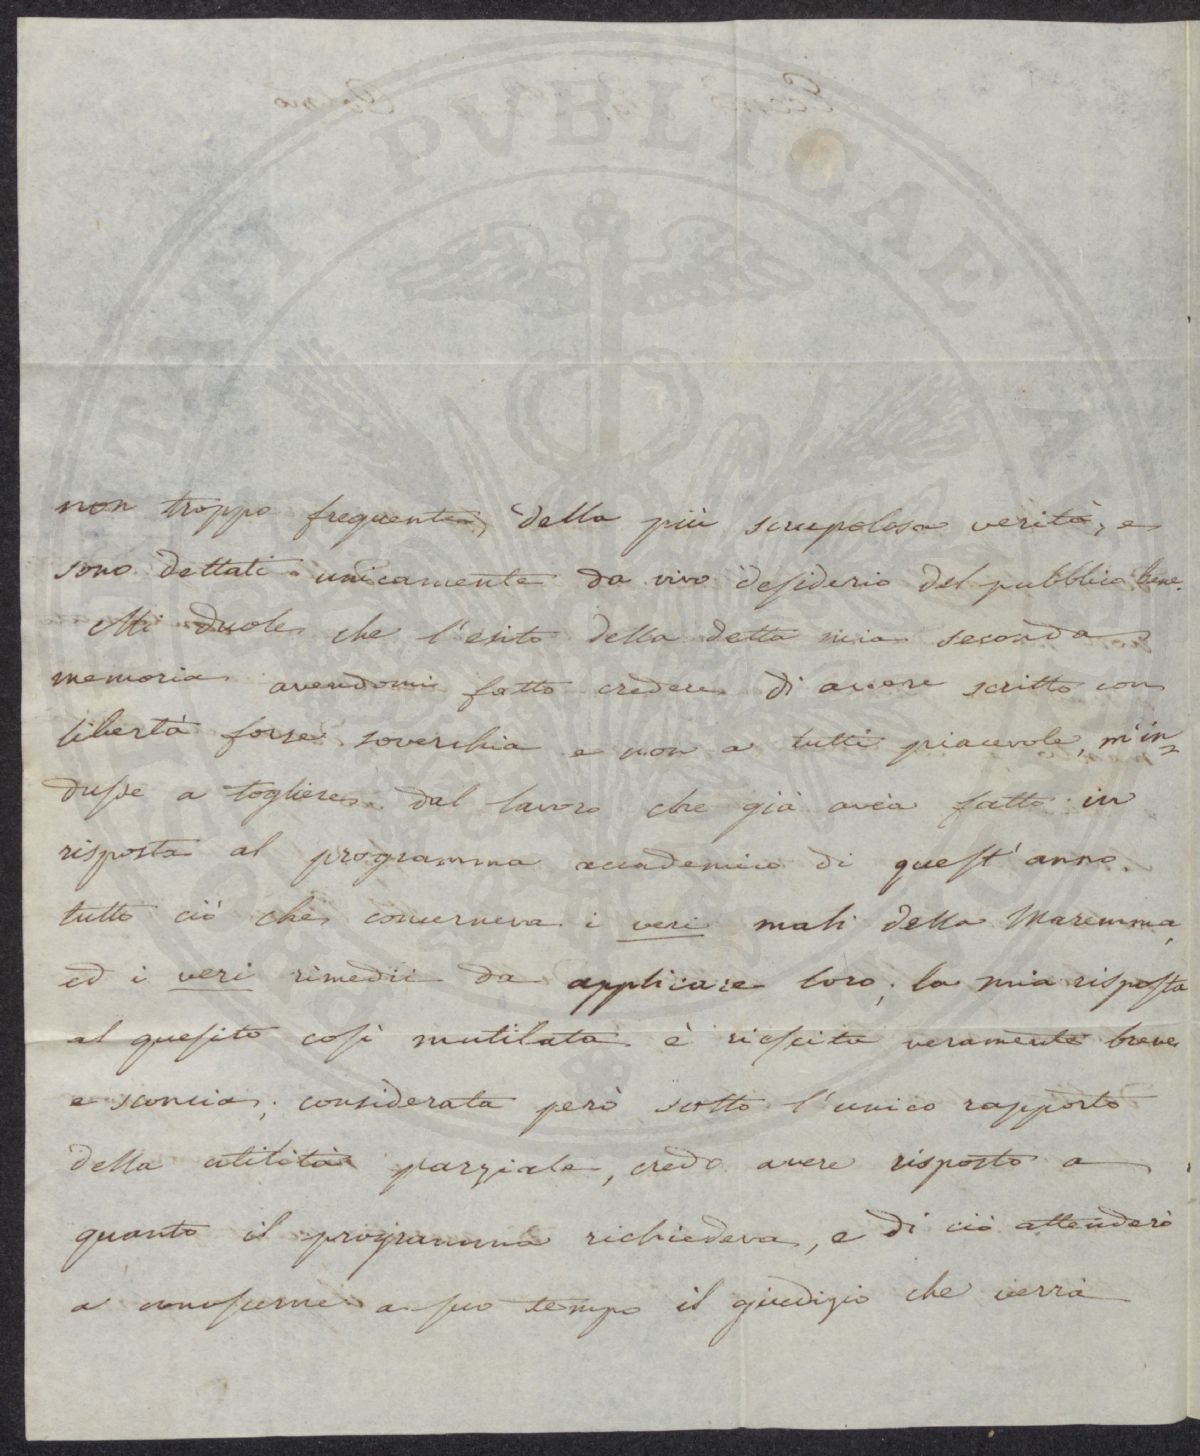 non troppo frequente, della più scrupolosa verità, e
sono dettati unicamente da vivo desiderio del pubblico bene.
Mi duole che l'esito della detta mia seconda
memoria avendomi fatto credere di avere scritto con
libertà forse soverchia e non a tutti piacevole, m'in=
dusse a togliere dal lavoro che già avea fatto in
risposta al programma accademico di quest'anno
tutto ciò che concerneva i veri mali della Maremma,
ed i veri rimedii da applicare loro; la mia risposta
al quesito così mutilata è riescita veramente breve
e sconcia; considerata però sotto l'unico rapporto
della utilità parziale, credo avere risposto a
quanto il programma richiedeva, e di ciò attenderò
a conoscerne a suo tempo il giudizio che verrà